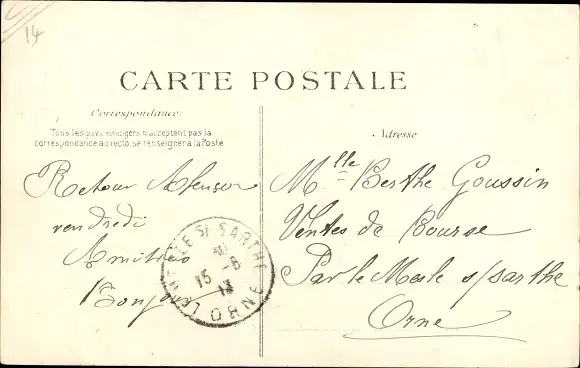 14
CARTE POSTALE
Correspondance.
Tous les pays étrangers n'acceptent pas la
correspondance au recto, se renseigner à la Poste
Adresse
Retour
vendredi
Amitiés
Bonjour
S/ SARTHE
15 -8
13
ORNE
Mlle Berthe Goussin
Ventes de Bourse
Par le Mesle s/sarthe
Orne